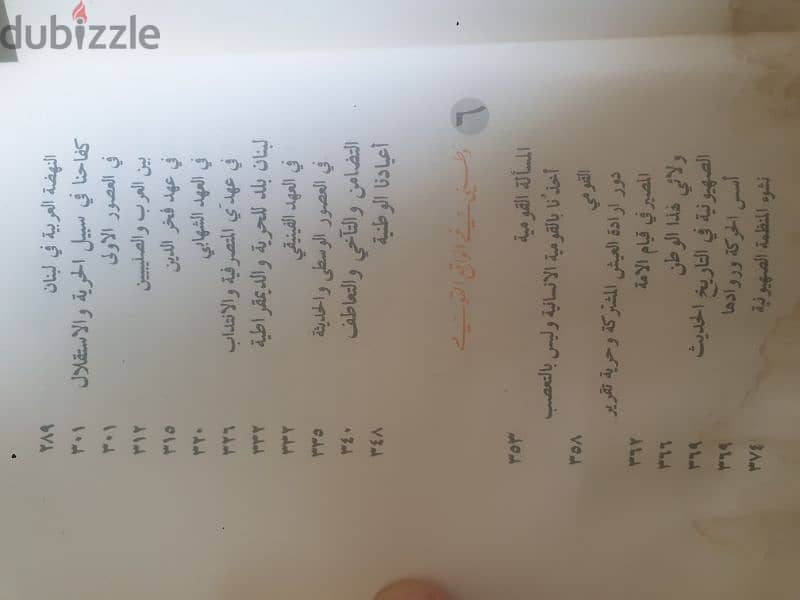 dubizzle
النهضة العربية في لبنان ٢٨٩
كفاحنا في سبيل الحرية والاستقلال ٣٠١
في العصور الاولى ٣٠١
بين العرب والصليبيين ٣١٢
في عهد فخر الدين ٣١٥
في العهد الشهابي ٣٢٠
في عهدَي المتصرفية والانتداب ٣٢٦
لبنان بلد للحرية والديمقراطية ٣٣٢
في العهد الفينيقي ٣٣٢
في العصور الوسطى والحديثة ٣٣٥
التضامن والتآخي والتعاطف ٣٤٠
أعيادنا الوطنية ٣٤٨
٦
وطني في الواقع القومي
المسألة القومية ٣٥٣
أخذُنا بالقومية الانسانية وليس بالتعصب
القومي ٣٥٨
دور ارادة العيش المشتركة وحرية تقرير
المصير في قيام الامة ٣٦٢
ولائي لهذا الوطن ٣٦٦
الصهيونية في التاريخ الحديث ٣٦٩
أسس الحركة وروادها ٣٦٩
نشوء المنظمة الصهيونية ٣٧٤